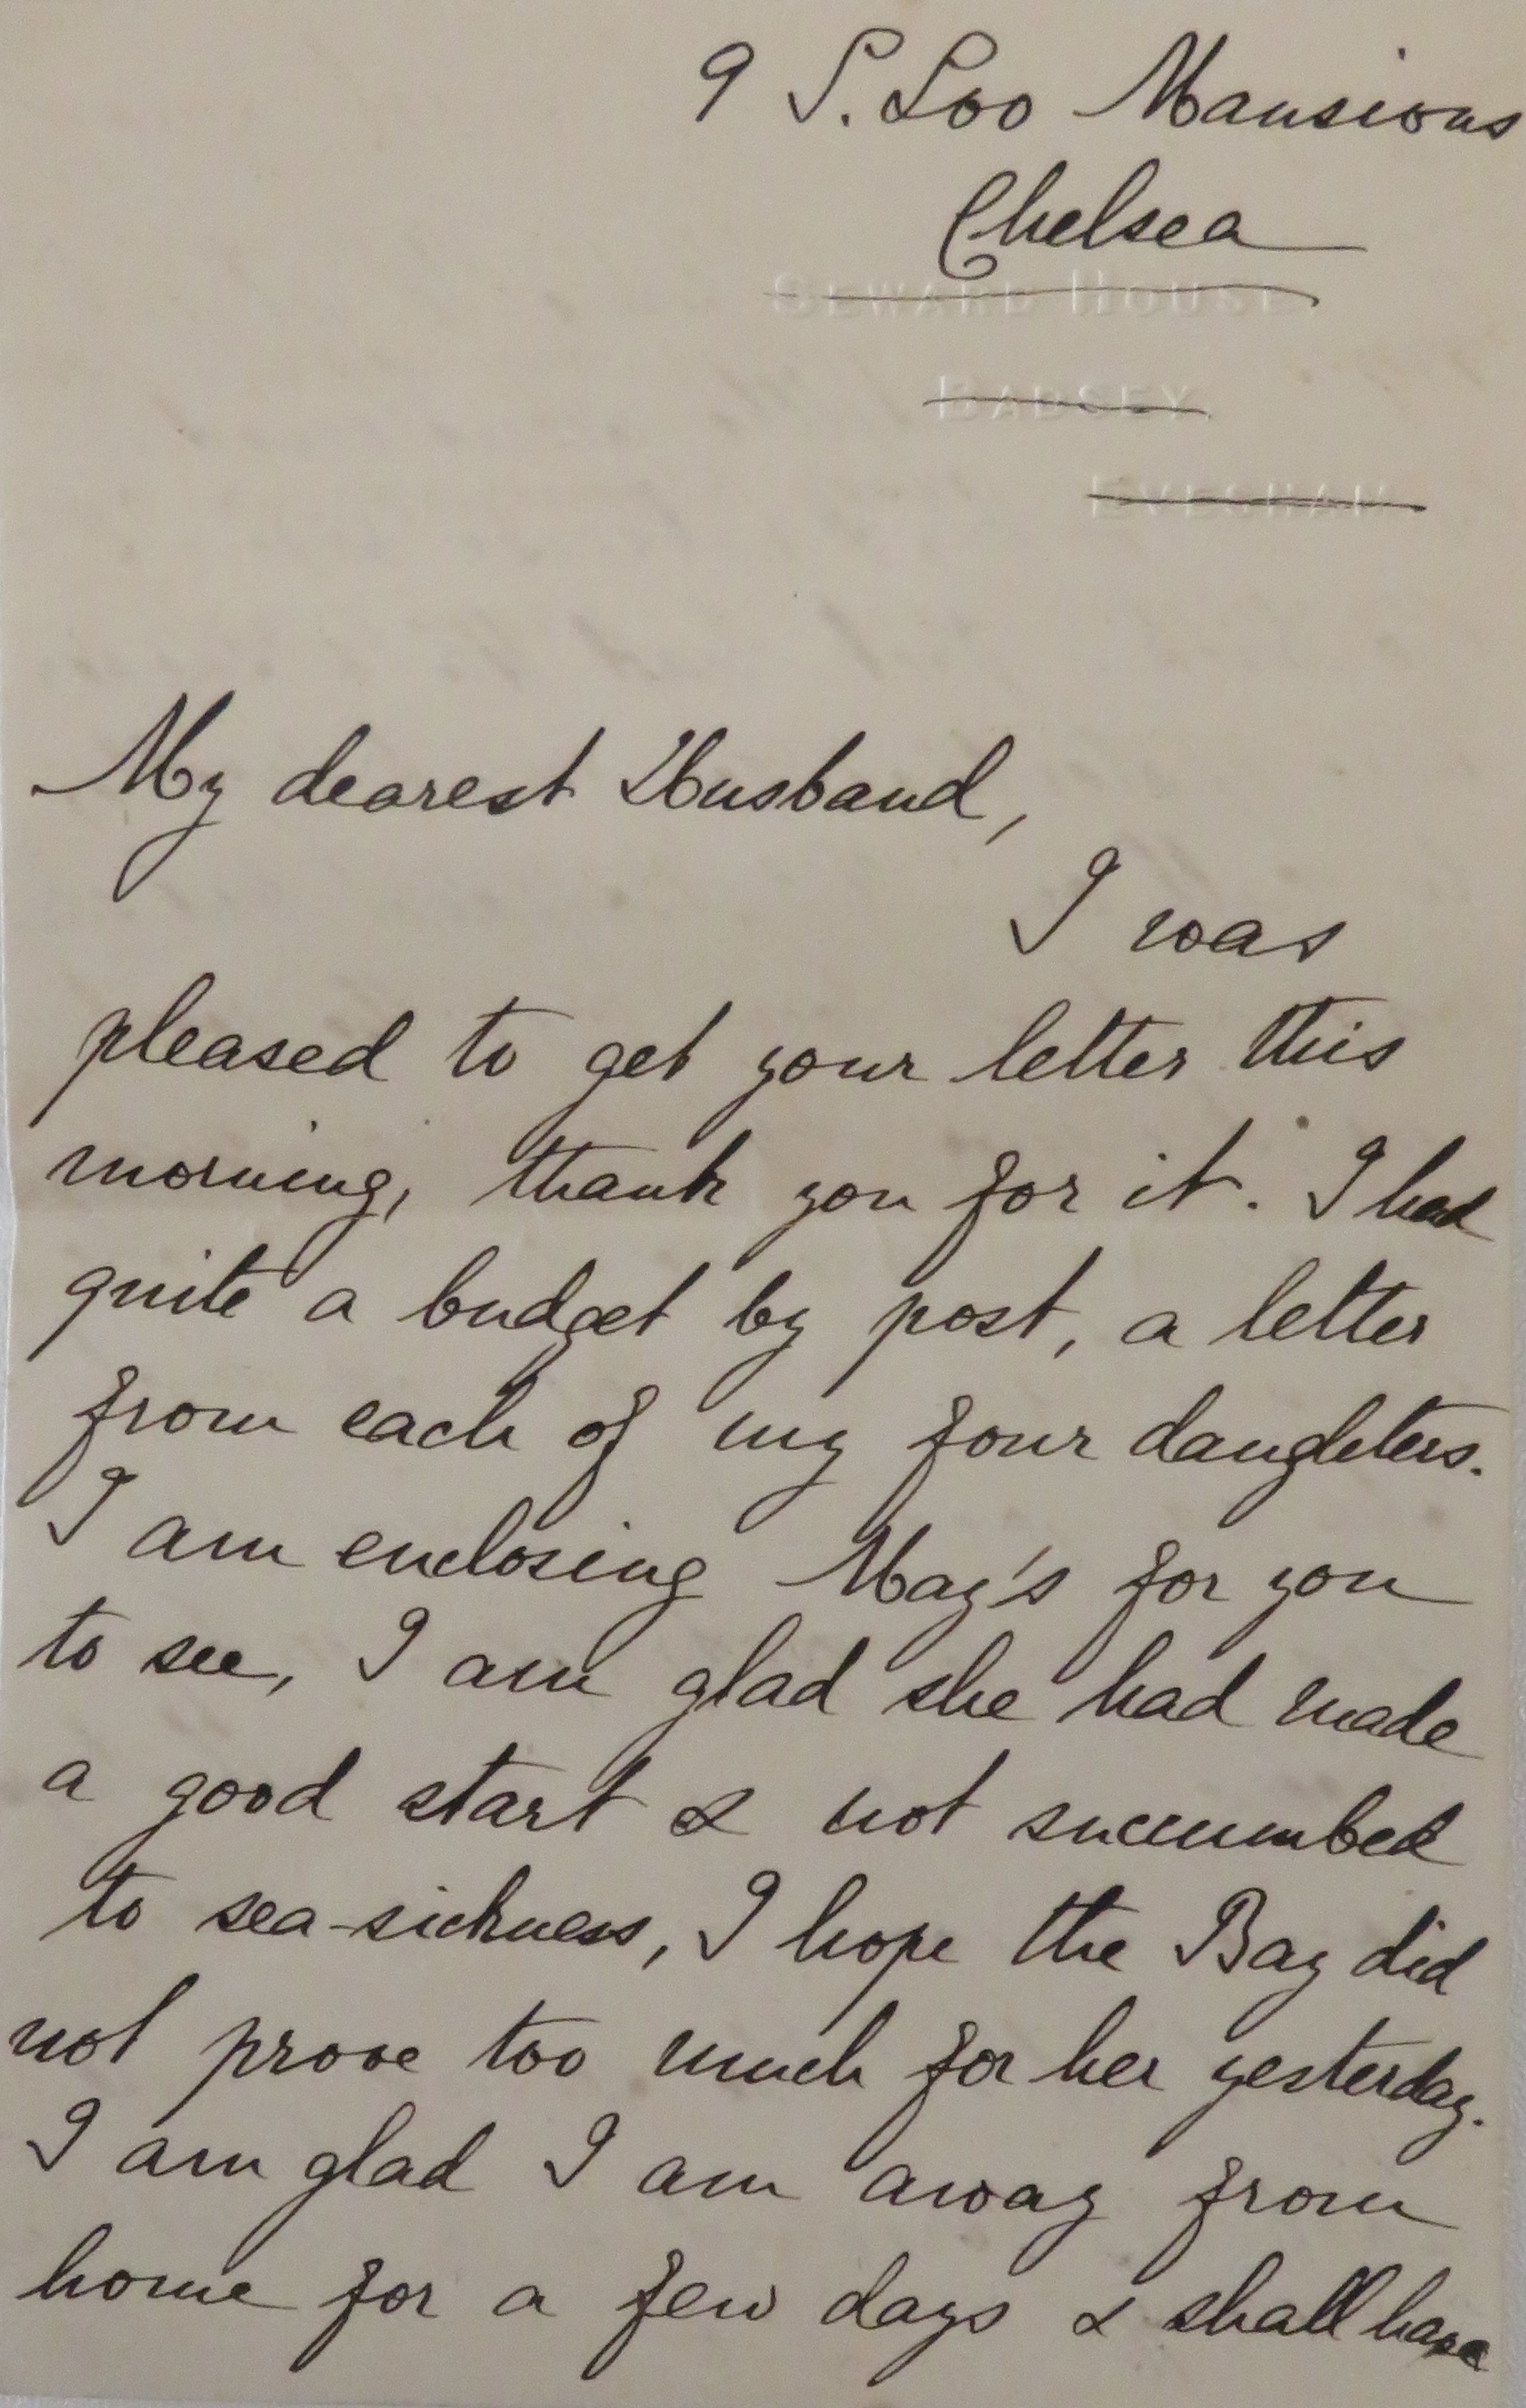 9 S. Loo Mansions
Chelsea
SEWARD HOUSE,
BADSEY,
EVESHAM
My dearest Husband,
I was
pleased to get your letter this
morning, thank you for it. I had
quite a budget by post, a letter
from each of my four daughters.
I am enclosing May's for you
to see, I am glad she had made
a good start & not succumbed
to sea-sickness, I hope the Bay did
not prove too much for her yesterday.
I am glad I am away from
home for a few days & shall have